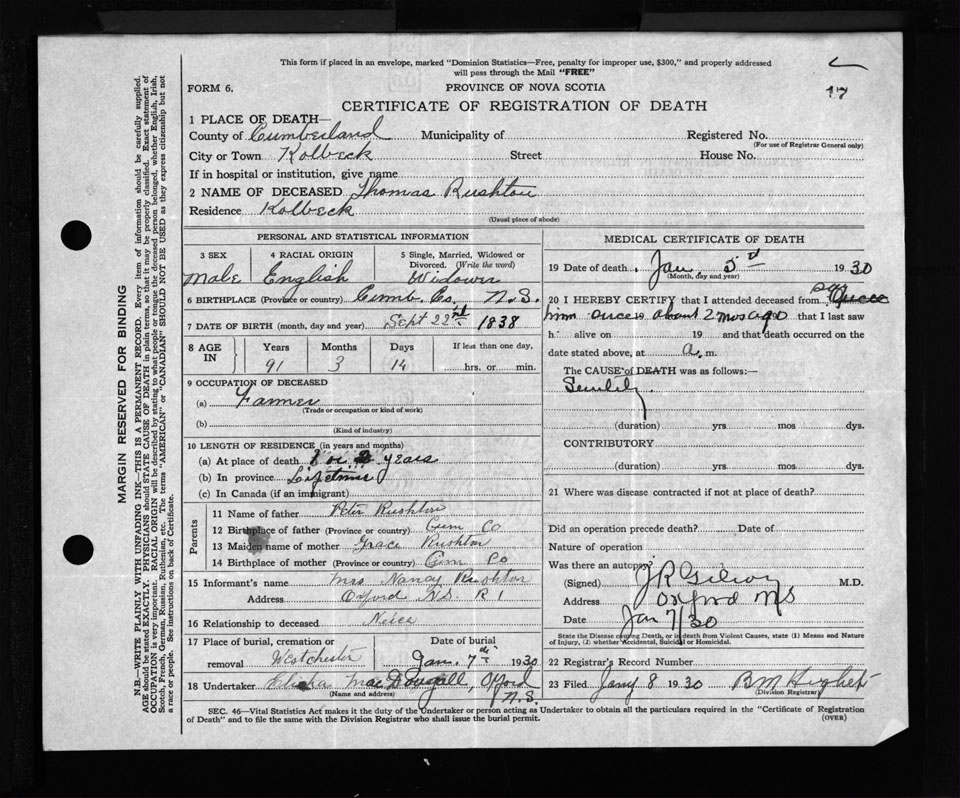 This form if placed in an envelope, marked "Dominion Statistics—Free, penalty for improper use, $300," and properly addressed
will pass through the Mail "FREE"
17
FORM 6.
PROVINCE OF NOVA SCOTIA
CERTIFICATE OF REGISTRATION OF DEATH
1 PLACE OF DEATH—
County of Cumberland Municipality of Registered No.
(For use of Registrar General only)
City or Town Kolbeck Street House No.
If in hospital or institution, give name
2 NAME OF DECEASED Thomas Rushton
Residence Kolbeck
(Usual place of abode)
PERSONAL AND STATISTICAL INFORMATION
3 SEX 4 RACIAL ORIGIN 5 Single, Married, Widowed or
Divorced. (Write the word)
Male English Widower
6 BIRTHPLACE (Province or country) Cumb. Co. N.S.
7 DATE OF BIRTH (month, day and year) Sept 22nd 1838
8 AGE IN Years Months Days If less than one day,
91 3 14 hrs. or min.
9 OCCUPATION OF DECEASED
(a) Farmer
(Trade or occupation or kind of work)
(b)
(Kind of industry)
10 LENGTH OF RESIDENCE (in years and months)
(a) At place of death years
(b) In province Lifetime
(c) In Canada (if an immigrant)
Parents
11 Name of father Peter Rushton
12 Birthplace of father (Province or country) Cum Co
13 Maiden name of mother Grace Rushton
14 Birthplace of mother (Province or country) Cum Co
15 Informant's name Mrs Nancy Rushton
Address Oxford N.S. R 1
16 Relationship to deceased Niece
17 Place of burial, cremation or Date of burial
removal Westchester Jan. 7th 1930
18 Undertaker Elisha MacDougall, Oxford
(Name and address) N.S.
MEDICAL CERTIFICATE OF DEATH
19 Date of death Jan. 5 1930
(Month, day and year)
20 I HEREBY CERTIFY that I attended deceased from
him once 19 about 2 mos ago that I last saw
h alive on 19 and that death occurred on the
date stated above, at a. m.
The CAUSE of DEATH was as follows:—
Senility.
(duration) yrs mos dys.
CONTRIBUTORY
(duration) yrs. mos. dys.
21 Where was disease contracted if not at place of death?
Did an operation precede death? Date of
Nature of operation
Was there an autopsy?
(Signed) J R Gilroy M.D.
Address Oxford NS
Date Jan 7/30
State the Disease causing Death, or in death from Violent Causes, state (1) Means and Nature
of Injury, (2) whether Accidental, Suicidal or Homicidal.
22 Registrar's Record Number
23 Filed Jany 8 1930
(Division Registrar)
SEC. 46—Vital Statistics Act makes it the duty of the Undertaker or person acting as Undertaker to obtain all the particulars required in the "Certificate of Registration
of Death" and to file the same with the Division Registrar who shall issue the burial permit.
(OVER)
MARGIN RESERVED FOR BINDING
N.B.—WRITE PLAINLY WITH UNFADING INK—THIS IS A PERMANENT RECORD. Every item of information should be carefully supplied.
AGE should be stated EXACTLY. PHYSICIANS should STATE CAUSE OF DEATH in plain terms, so that it may be properly classified. Exact statement of
OCCUPATION is very important. RACIAL ORIGIN will be described by stating to what people or tongue the deceased person belonged, whether English, Irish,
Scotch, French, German, Russian, Ruthenian, etc. The terms "AMERICAN" or "CANADIAN" SHOULD NOT BE USED as they express citizenship but not
a race or people. See instructions on back of Certificate.